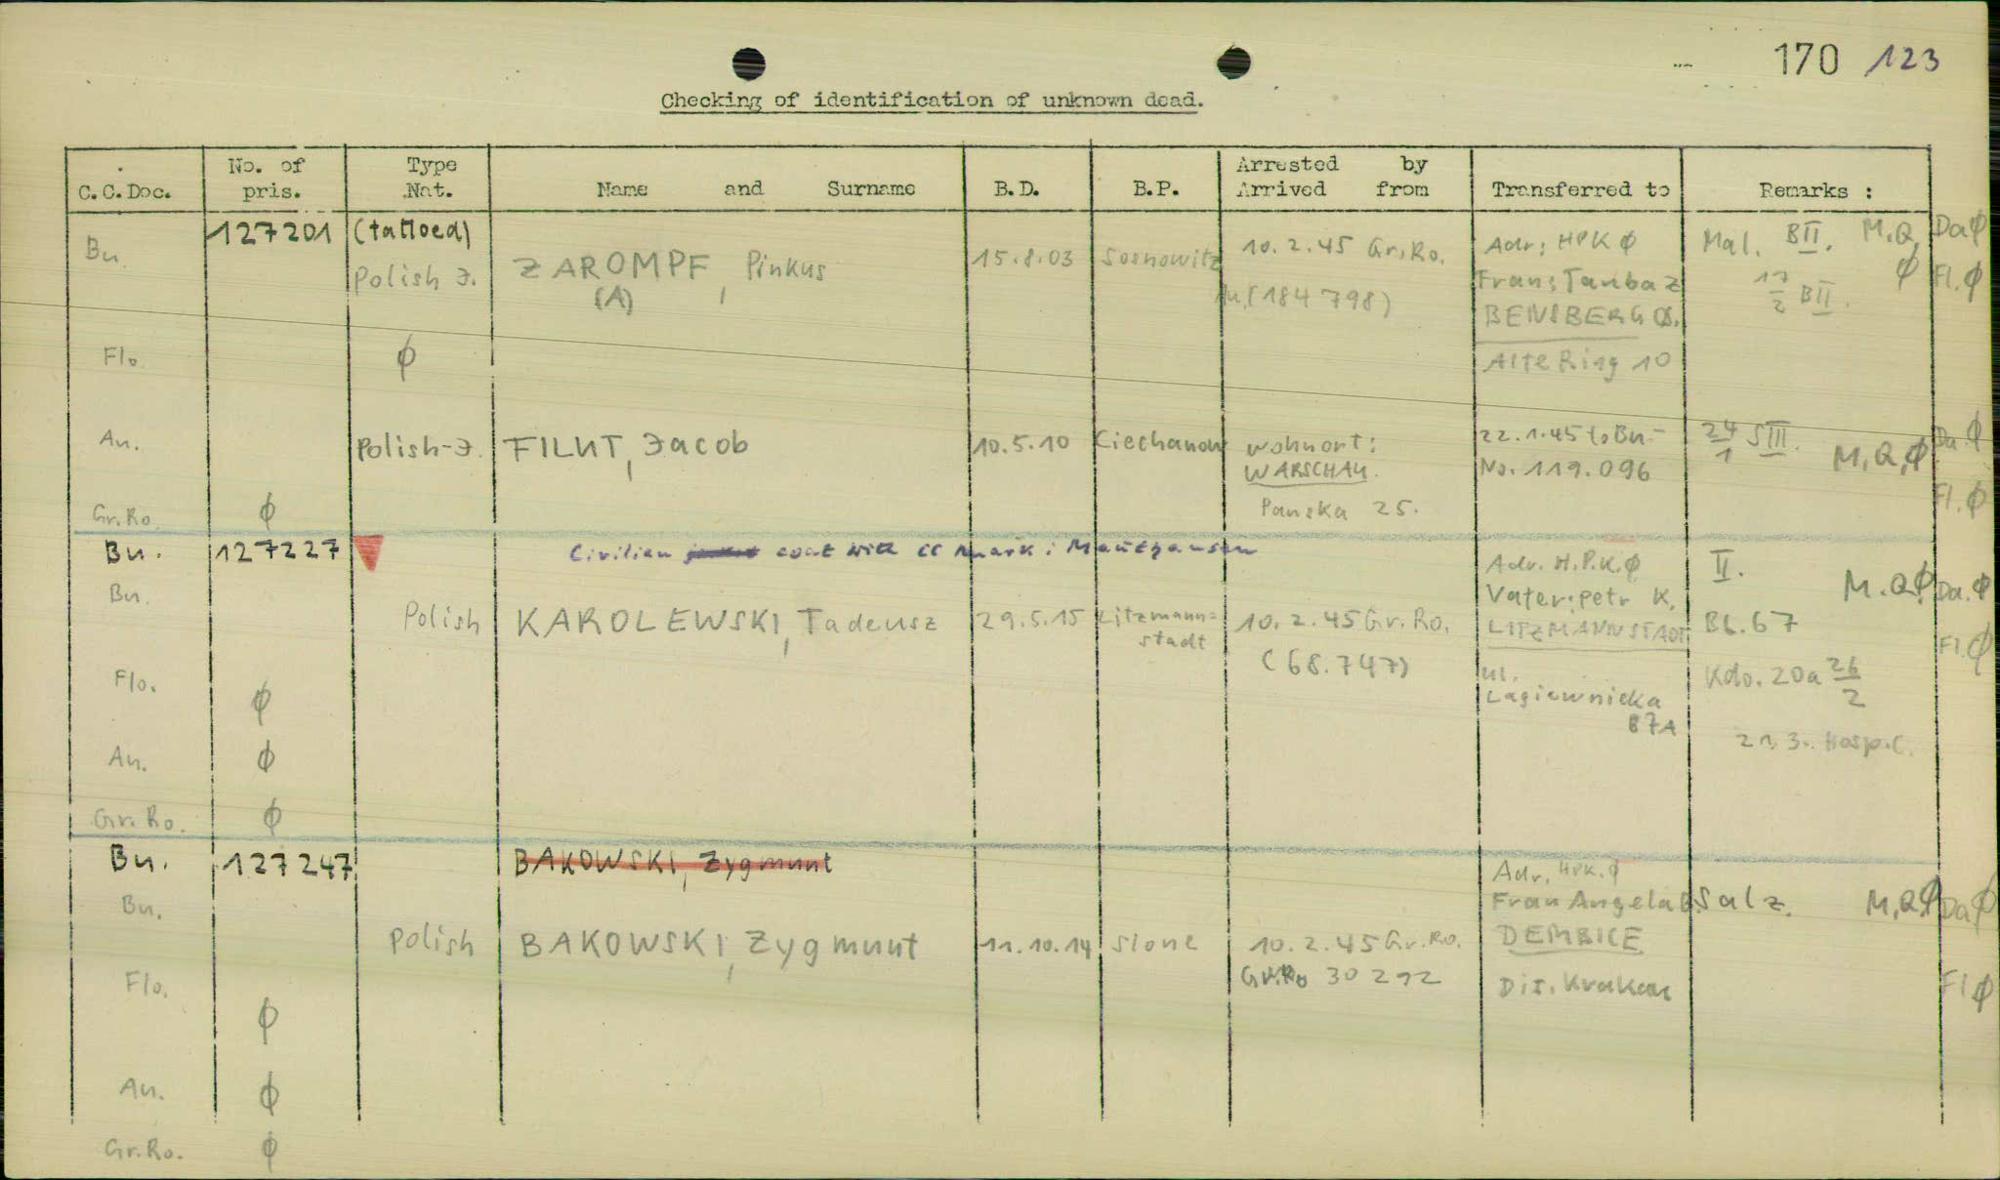 170 123
Checking of identification of unknown dead.
C.C.Doc. No. of pris. Type Nat. Name and Surname B.D. B.P. Arrested by Arrived from Transferred to Remarks :
127201 (tattoed)
Bu. Polish J. ZAROMPF, Pinkus 15.8.03 Sosnowitz 10.2.45 Gr.Ro. Adr: HPK ϕ Mal. BII. M.Q, ϕ Da ϕ
(A) (184798) Franz Taubaz 17/2 BII. Fl. ϕ
BENSBERG
Flo. ϕ Alte Ring 10
An. Polish-J. FILUT, Jacob 10.5.10 Ciechanow Wohnort: 22.1.45 to Bu.- 24/1 SIII. M,Q,ϕ Da. ϕ
WARSCHAU. No. 119.096
Gr.Ro. ϕ Panska 25. Fl. ϕ
Bu. 127227 Civilian coat with CC mark: Mauthausen
Bu. Adr. H.P.K. ϕ II. M.Qϕ Da. ϕ
Vater: Petr K.
Polish KAROLEWSKI, Tadeusz 29.5.15 Litzmann= 10.2.45 Gr.Ro. LITZMANNSTADT Bl. 67
stadt (68.747) Fl ϕ
Flo. ϕ ul. Kdo. 20a 26/2
Lagiewnicka
87A
An. ϕ 21.3. Hosp.C.
Gr.Ro. ϕ
Bu. 127247 BAKOWSKI, Zygmunt Adr. HPK. ϕ
Bu. Frau Angela B. Salz. M,Qϕ Da ϕ
Polish BAKOWSKI, Zygmunt 11.10.14 Slone 10.2.45 Gr.Ro. DEMBICE
Flo. ϕ Gr.Ro 30292 Dis. Krakau Fl ϕ
An. ϕ
Gr.Ro. ϕ